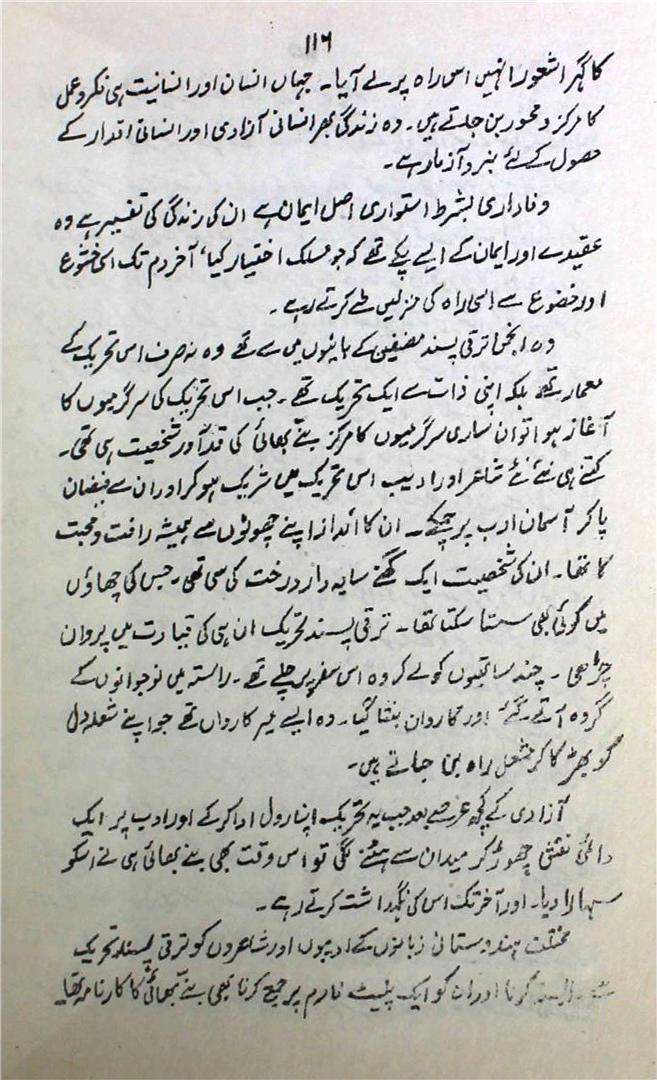 ۱۱۶
کا گہرا شعور انہیں اس راہ پر لے آیا۔ جہاں انسان اور انسانیت ہی فکر و عمل
کا مرکز و محور بن جاتے ہیں۔ وہ زندگی بھر انسانی آزادی اور انسانی اقدار کے
حصول کے لئے نبرد آزما رہے۔
وفاداری بشرط استواری اصل ایماں ہے ان کی زندگی کی تفسیر ہے وہ
عقیدے اور ایمان کے ایسے پکے تھے کہ جو مسلک اختیار کیا، آخر دم تک اسی خشوع
اور خضوع سے اسی راہ کی منزلیں طے کرتے رہے۔
وہ انجمن ترقی پسند مصنفین کے بانیوں میں سے تھے وہ نہ صرف اس تحریک کے
معمار تھے بلکہ اپنی ذات سے ایک تحریک تھے۔ جب اس تحریک کی سرگرمیوں کا
آغاز ہوا تو ان ساری سرگرمیوں کا مرکز بنّے بھائی کی قدآور شخصیت ہی تھی۔
کتنے ہی نئے نئے شاعر اور ادیب اس تحریک میں شریک ہو کر اور ان سے فیضان
پا کر آسمان ادب پر چمکے۔ ان کا انداز اپنے چھوٹوں سے ہمیشہ رافت و محبت
کا تھا۔ ان کی شخصیت ایک گھنے سایہ دار درخت کی سی تھی۔ جس کی چھاؤں
میں کوئی بھی سستا سکتا تھا۔ ترقی پسند تحریک ان ہی کی قیادت میں پروان
چڑھی۔ چند ساتھیوں کو لے کر وہ اس سفر پر چلے تھے۔ راستہ میں نوجوانوں کے
گروہ آتے گئے اور کارواں بنتا گیا۔ وہ ایسے میر کارواں تھے جو اپنے شعلہ دل
کو بھڑکا کر مشعل راہ بن جاتے ہیں۔
آزادی کے کچھ عرصے بعد جب یہ تحریک اپنا رول ادا کر کے اور ادب پر ایک
دائمی نقش چھوڑ کر میدان سے ہٹنے لگی تو اس وقت بھی بنے بھائی ہی نے اسکو
سہارا دیا۔ اور آخر تک اس کی نگہداشت کرتے رہے۔
مختلف ہندوستانی زبانوں کے ادیبوں اور شاعروں کو ترقی پسند تحریک
سے وابستہ کرنا اور ان کو ایک پلیٹ فارم پر جمع کرنا بھی بنّے بھائی کا کارنامہ تھا۔